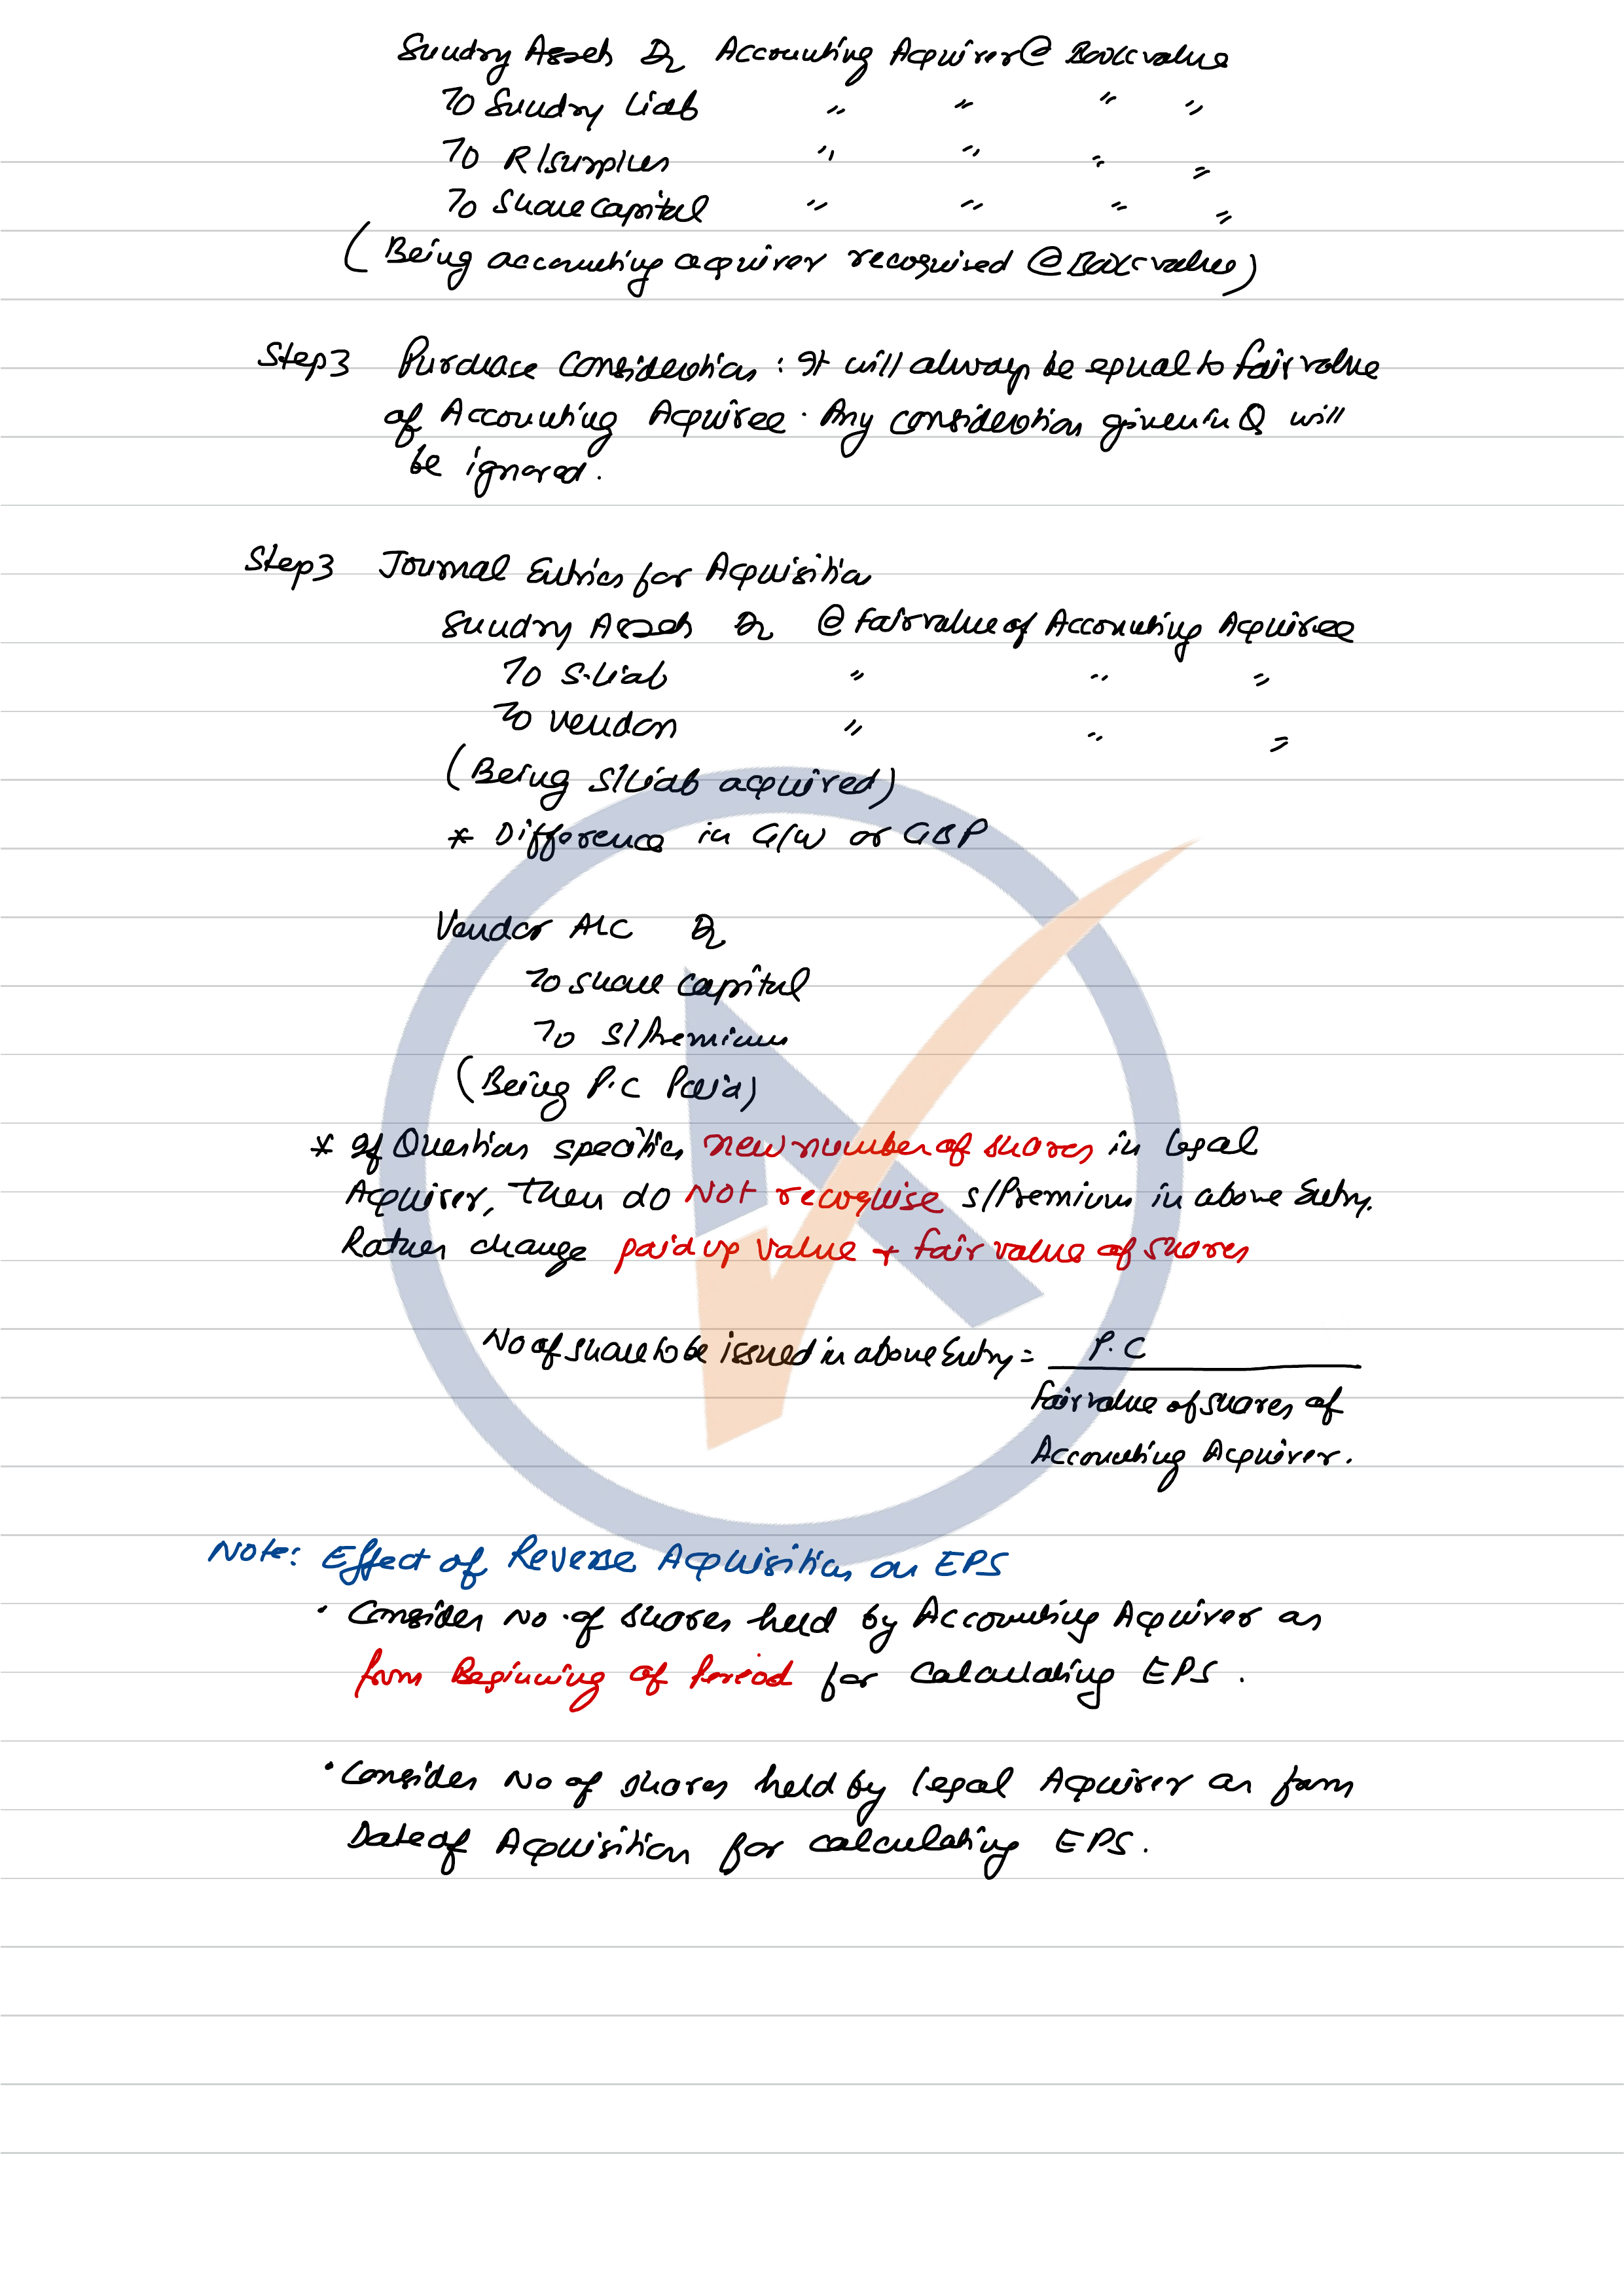 Sundry Assets Dr Accounting Acquirer @ Book value
To Sundry Liab " " " "
To R/Surplus " " " "
To Share Capital " " " "
(Being accounting acquirer recognised @ Book value)
Step3 Purchase Consideration : It will always be equal to fair value
of Accounting Acquiree. Any consideration given in Q will
be ignored.
Step3 Journal Entries for Acquisition
Sundry Assets Dr @ fair value of Accounting Acquiree
To S.Liab " " "
To vendor " " "
(Being S/Liab acquired)
* Difference in G/W or GBP
Vendor A/C Dr
To Share Capital
To S/Premium
(Being P.C Paid)
* If Question specifies new number of shares in legal
Acquirer, then do NOT recognise S/Premium in above Entry.
Rather change paid up value + fair value of shares
No of share to be issued in above Entry = P.C
fair value of shares of
Accounting Acquirer.
Note: Effect of Reverse Acquisition on EPS
• Consider No. of shares held by Accounting Acquirer as
from Beginning of Period for Calculating EPS.
• Consider No of shares held by legal Acquirer as from
Date of Acquisition for calculating EPS.